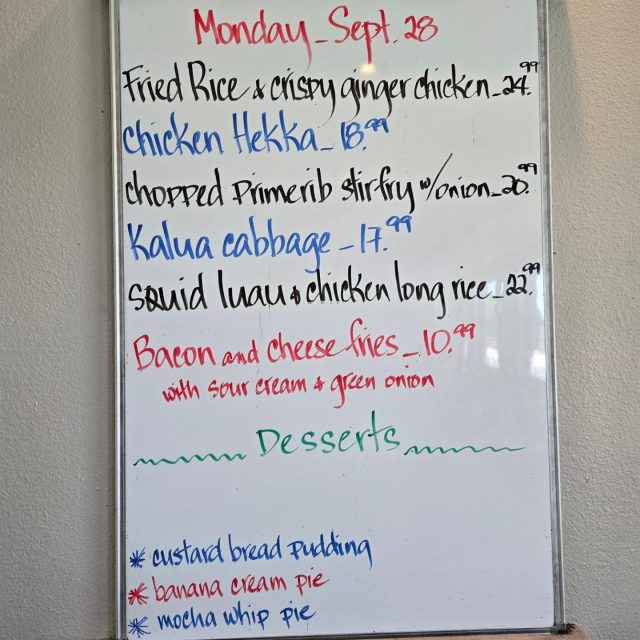 Monday - Sept. 28
Fried Rice & crispy ginger chicken - 24.99
Chicken Hekka - 18.99
chopped primerib stirfry w/onion - 20.99
Kalua cabbage - 17.99
squid luau & chicken long rice - 22.99
Bacon and cheese fries - 10.99
with sour cream & green onion
Desserts
* custard bread pudding
* banana cream pie
* mocha whip pie